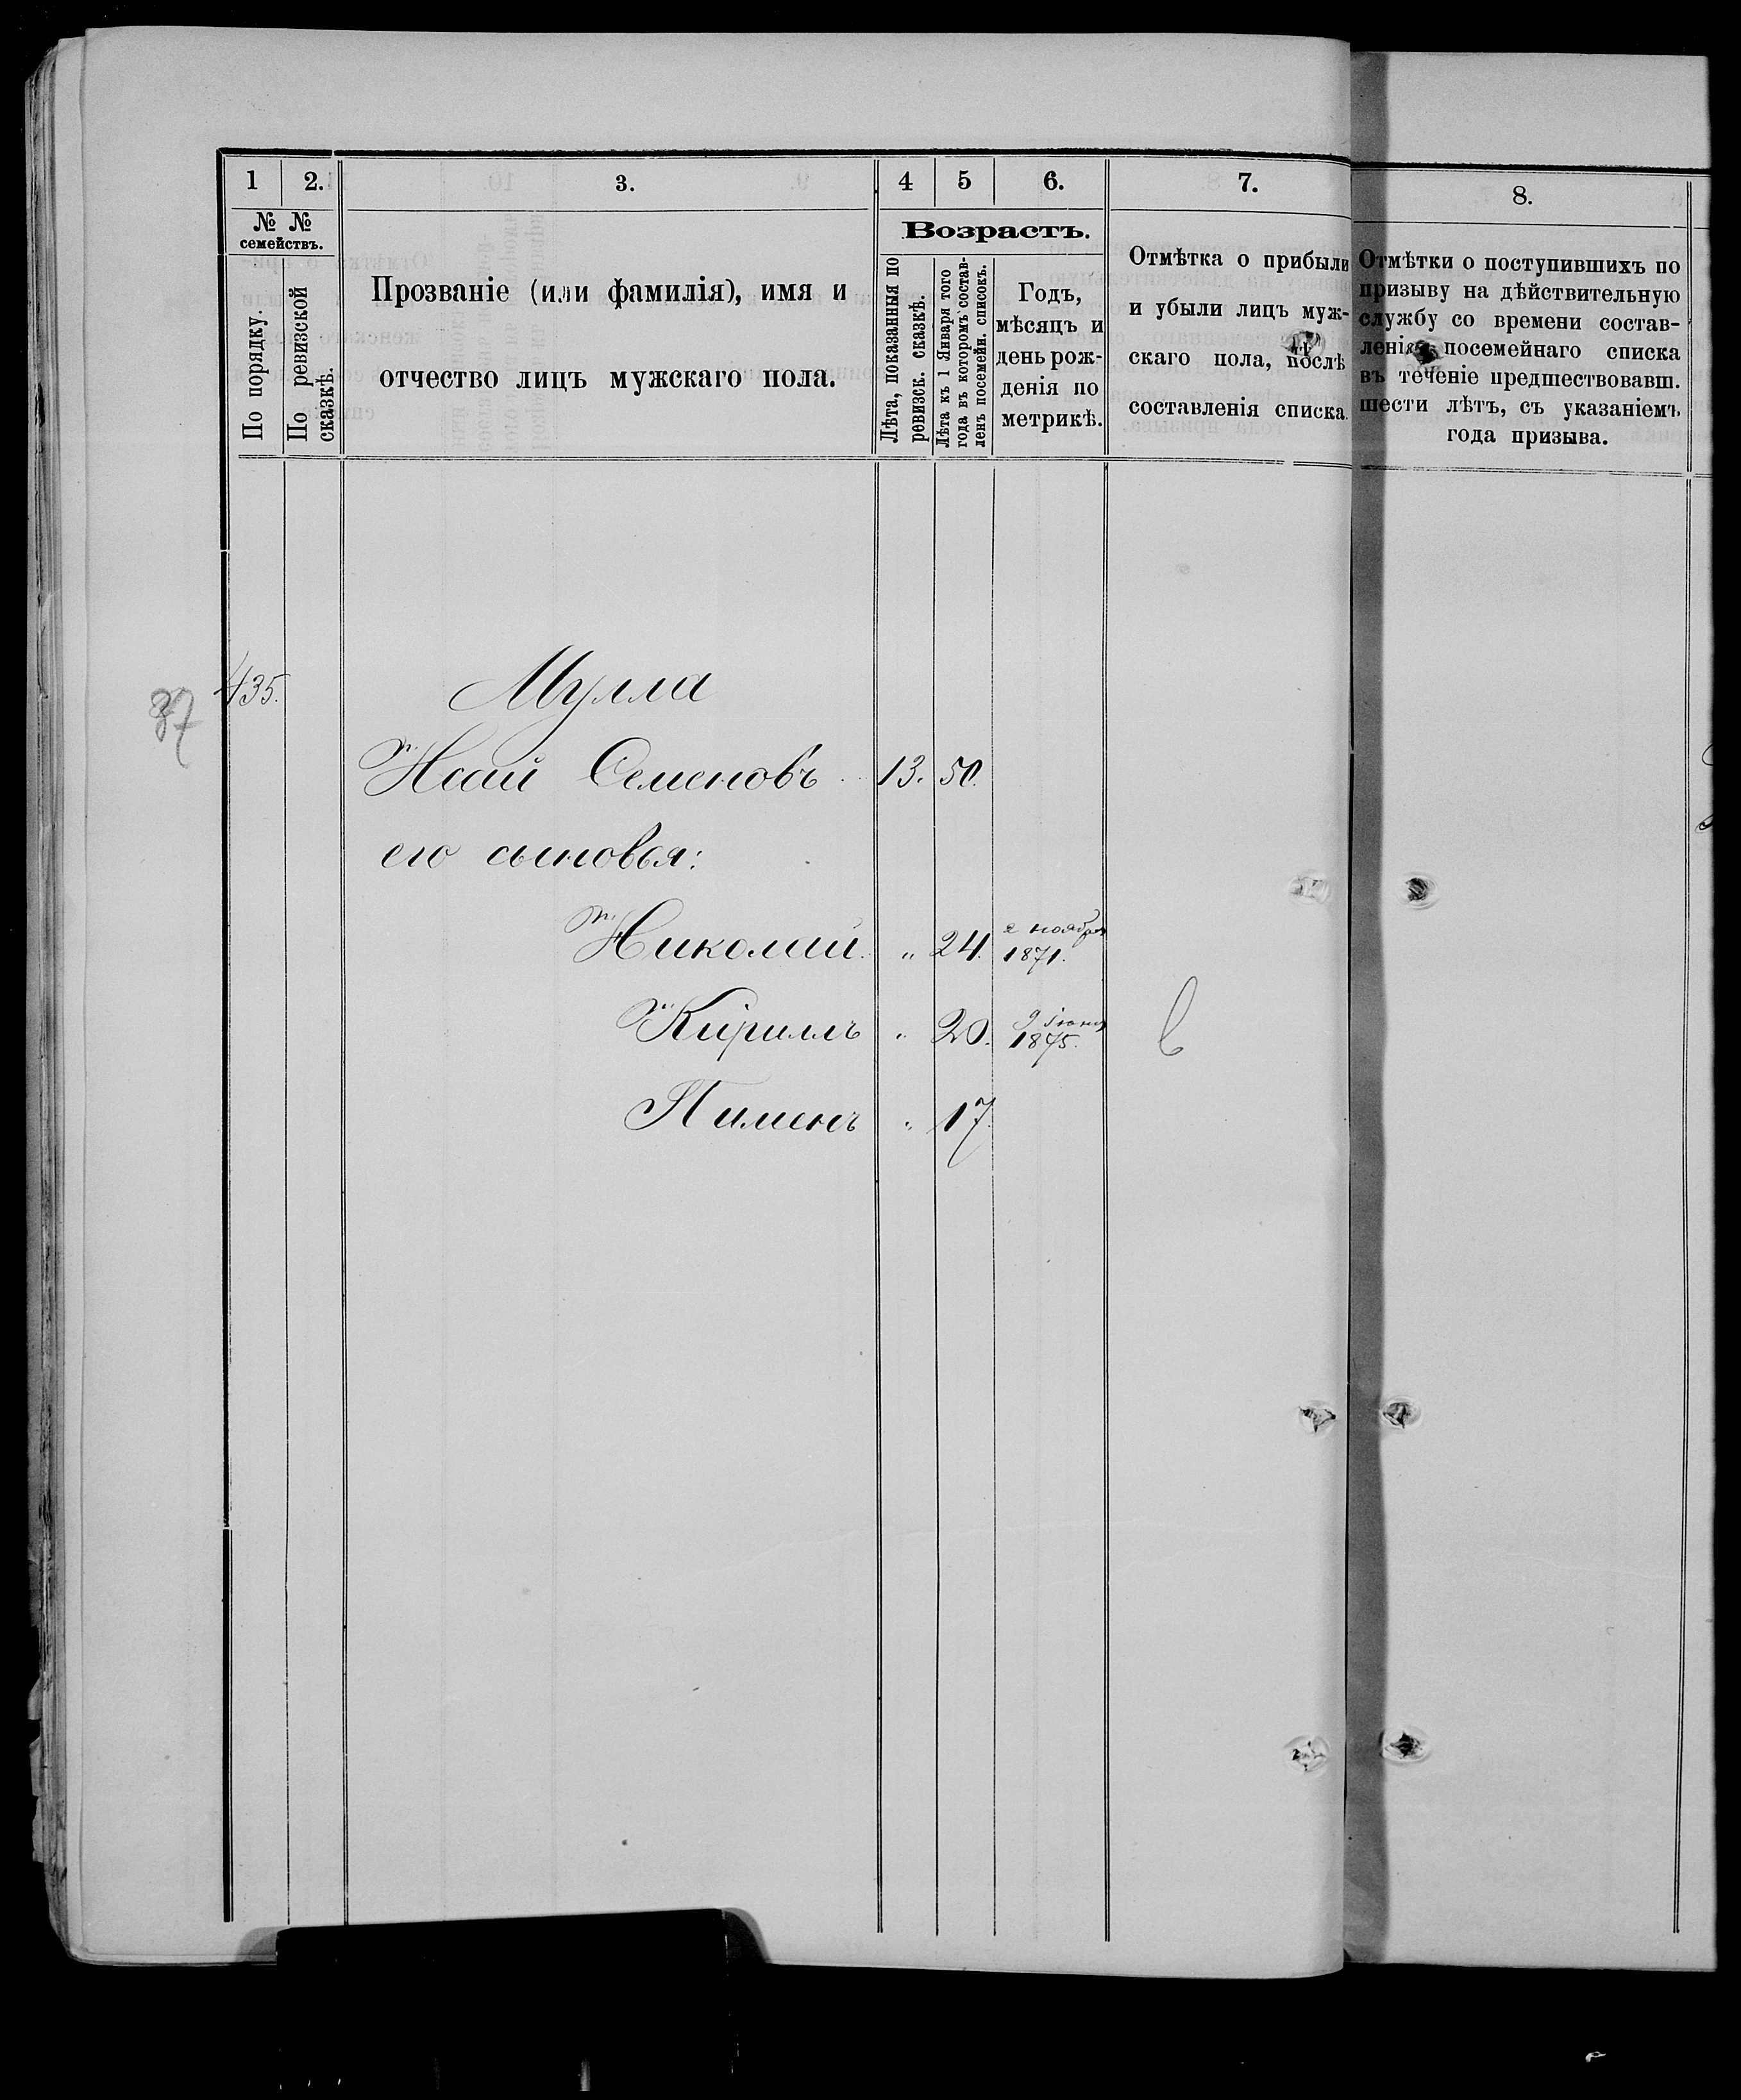 1
2.
3.
4
5
6.
7.
8.
№ №
семействъ.
По порядку.
По ревизской
сказкѣ.
Прозваніе (или фамилія), имя и
отчество лицъ мужскаго пола.
Возрастъ.
Лѣта, показанныя по
ревизск. сказкѣ.
Лѣта къ 1 Января того
года въ которомъ состав-
ленъ посемейн. списокъ.
Годъ,
мѣсяцъ и
день рож-
денія по
метрикѣ.
Отмѣтка о прибыли
и убыли лицъ муж-
скаго пола, послѣ
составленія списка.
Отмѣтки о поступившихъ по
призыву на дѣйствительную
службу со времени состав-
ленія посемейнаго списка
въ теченіе предшествовавш.
шести лѣтъ, съ указаніемъ
года призыва.
435.
37
Мулла
Исай Семеновъ 13. 50.
его сыновья:
Николай. „ 24. 2 ноября
1871.
Кирилъ „ 20. 9 іюня
1875.
Пименъ „ 17.